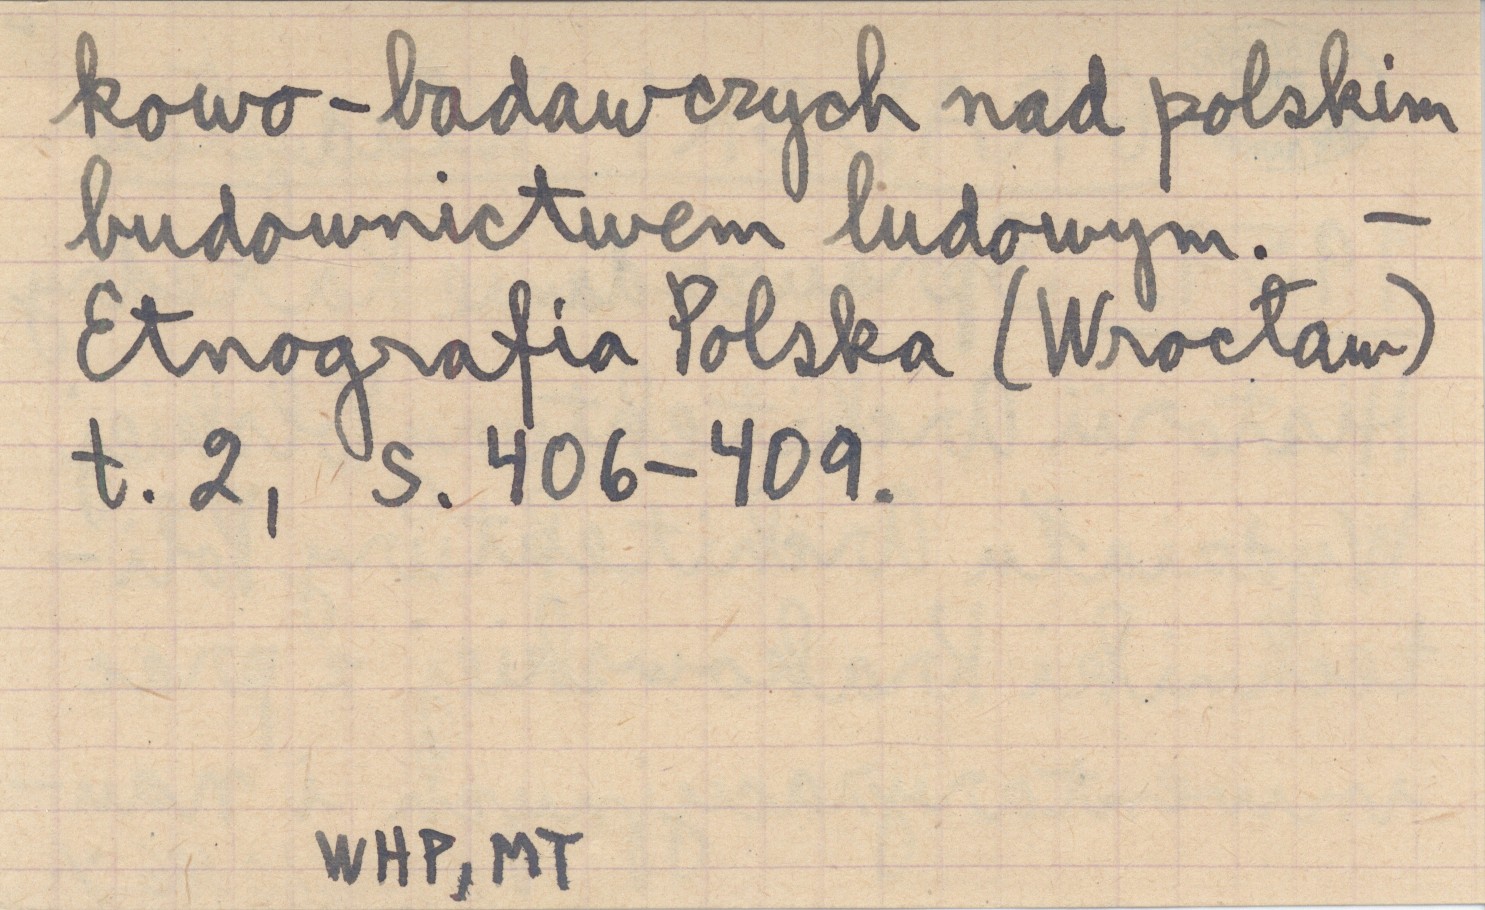 kowo-badawczych nad polskim
budownictwem ludowym. —
Etnografia Polska (Wrocław)
t. 2, s. 406-409.
WHP, MT